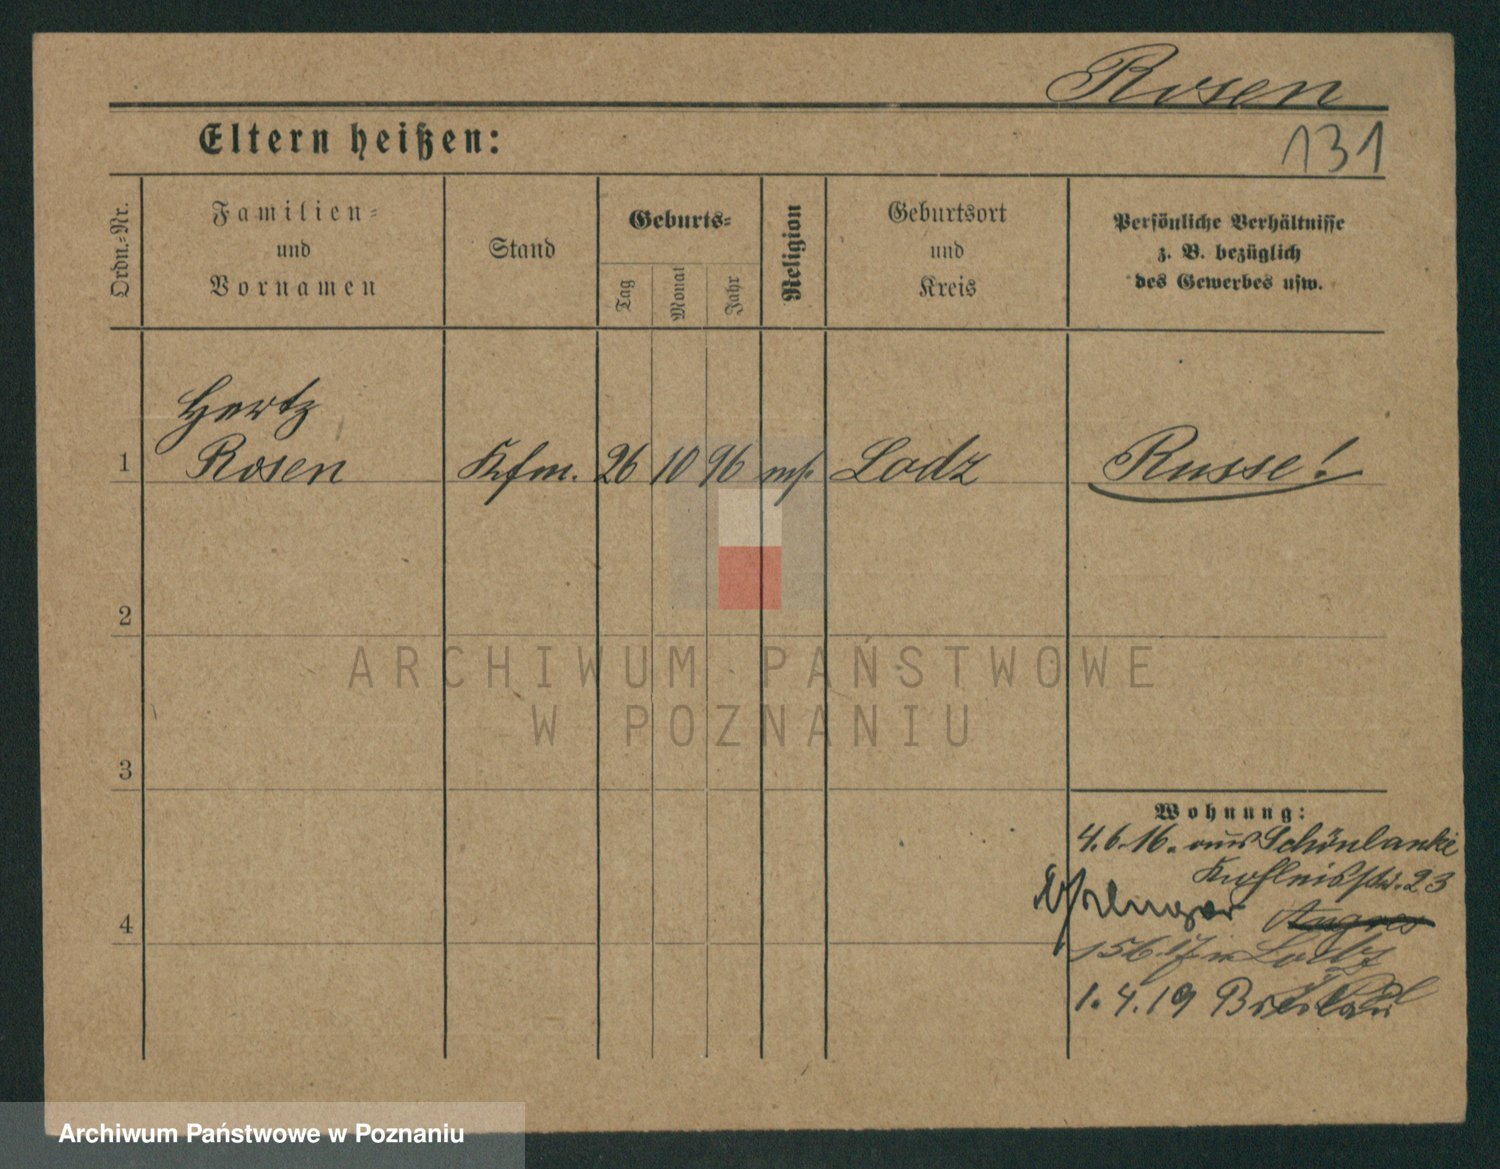 Rosen
131
Eltern heißen:
Ordn.-Nr.
Familien-
und
Vornamen
Stand
Geburts-
Tag
Monat
Jahr
Religion
Geburtsort
und
Kreis
Persönliche Verhältnisse
z. B. bezüglich
des Gewerbes usw.
Hertz
1 Rosen Kfm. 26 10 96 Lodz Russe!
2
ARCHIWUM PAŃSTWOWE
W POZNANIU
3
Wohnung:
4.6.16. aus Schönlanke
23
4
Lodz
1.4.19 Breslau
Archiwum Państwowe w Poznaniu